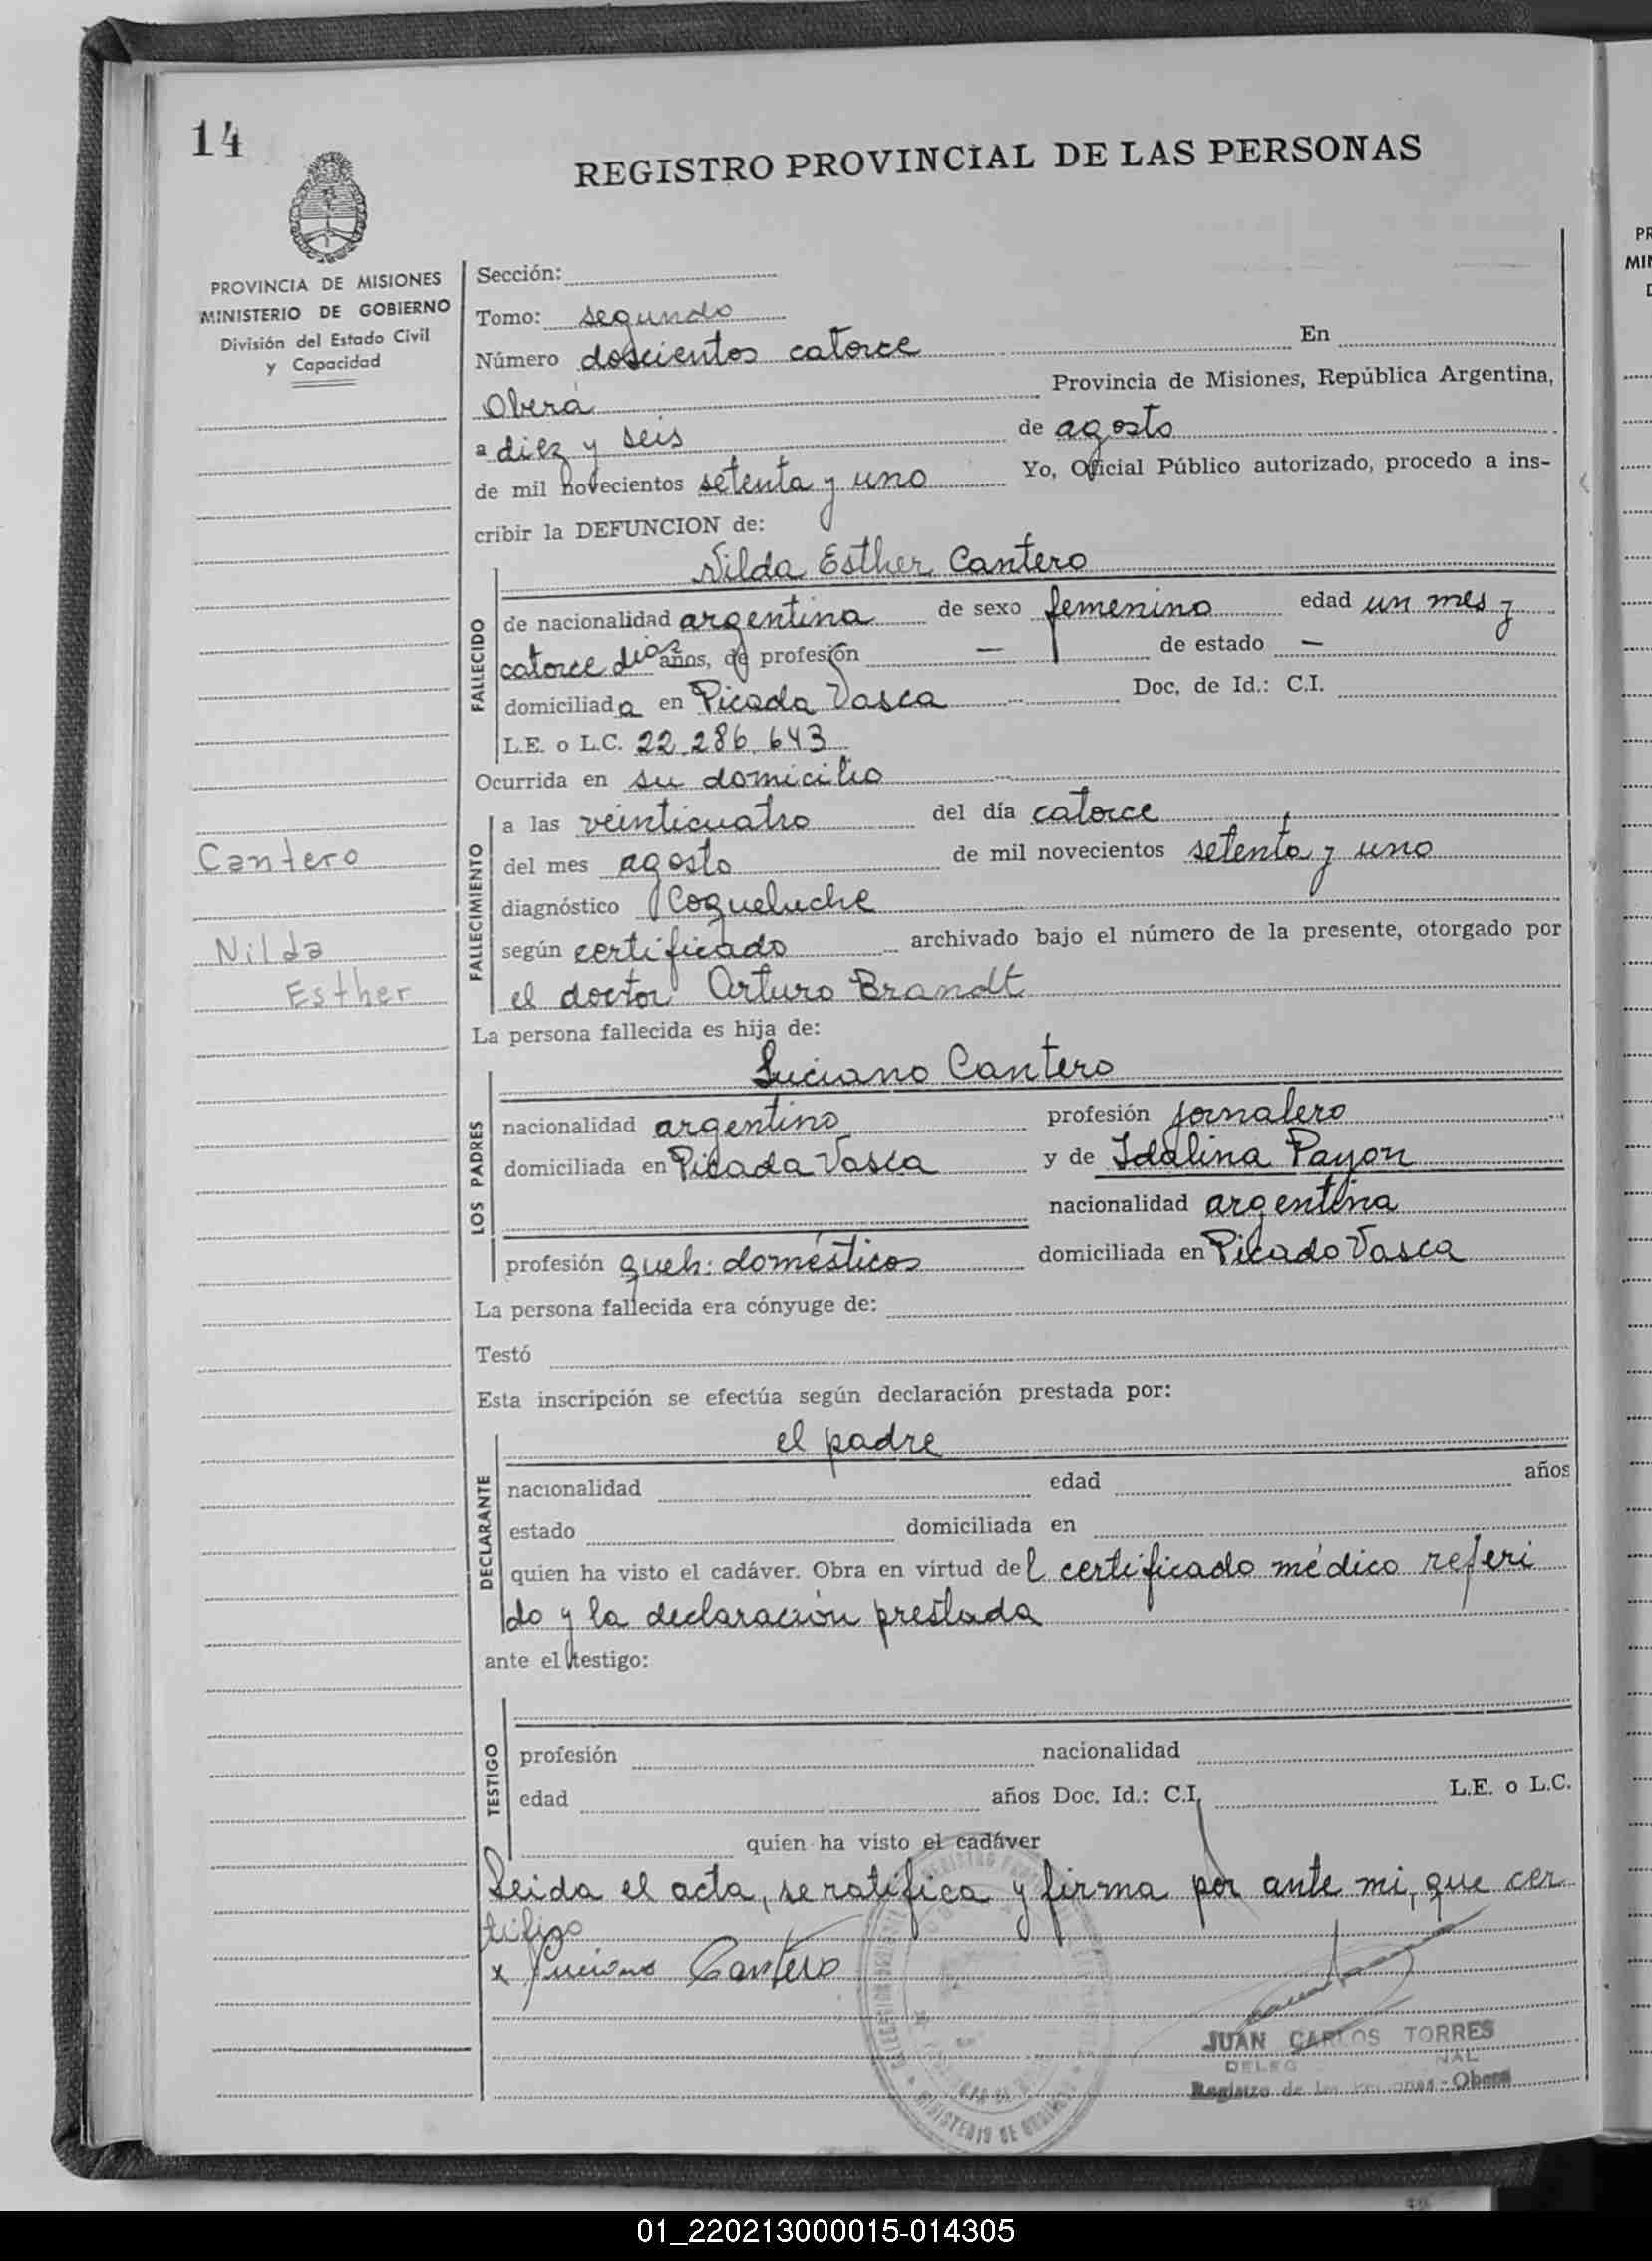 14
REGISTRO PROVINCIAL DE LAS PERSONAS
PROVINCIA DE MISIONES
MINISTERIO DE GOBIERNO
División del Estado Civil
y Capacidad
Sección:
Tomo: segundo
Número doscientos catorce En
Oberá Provincia de Misiones, República Argentina,
a diez y seis de agosto
de mil novecientos setenta y uno Yo, Oficial Público autorizado, procedo a ins-
cribir la DEFUNCION de:
FALLECIDO
Nilda Esther Cantero
de nacionalidad argentina de sexo femenino edad un mes y
catorce dias años, de profesión — de estado —
domiciliada en Picada Vasca Doc. de Id.: C.I.
L.E. o L.C. 22.286.643
Ocurrida en su domicilio
FALLECIMIENTO
a las veinticuatro del día catorce
del mes agosto de mil novecientos setenta y uno
Cantero
diagnóstico Coqueluche
según certificado archivado bajo el número de la presente, otorgado por
Nilda
el doctor Arturo Brandt
Esther
La persona fallecida es hija de:
LOS PADRES
Luciano Cantero
nacionalidad argentino profesión jornalero
domiciliada en Picada Vasca y de Idalina Payon
nacionalidad argentina
profesión queh: domésticos domiciliada en Picado Vasca
La persona fallecida era cónyuge de:
Testó
Esta inscripción se efectúa según declaración prestada por:
DECLARANTE
el padre
nacionalidad edad años
estado domiciliada en
quien ha visto el cadáver. Obra en virtud del certificado médico referi
do y la declaración prestada
ante el testigo:
TESTIGO
profesión nacionalidad
edad años Doc. Id.: C.I. L.E. o L.C.
quien ha visto el cadáver
Leida el acta, se ratifica y firma por ante mi, que cer
tifico
x Luciano Cantero
JUAN CARLOS TORRES
Registro de las Personas - Oberá
MINISTERIO DE GOBIERNO
01_220213000015-014305